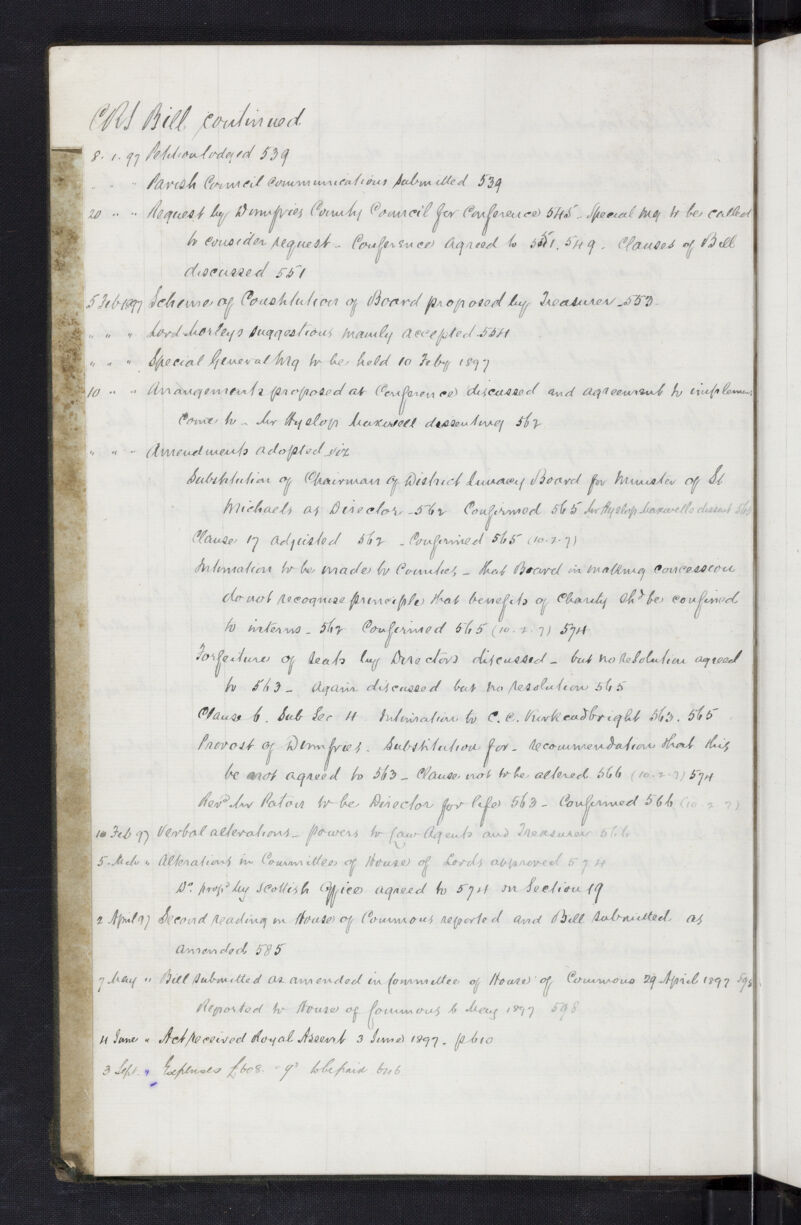 CRI Bill continued
8. 1. 97 Petition lodged 539
" " " Parish Council communications submitted 539
20 " " Request by Dumfries County Council for Conference 545 - Special Mg to be called
to consider request - Conference agreed to 551. 549. Clauses of Bill
discussed 551
5 Feb 1897 Scheme of Constitution of Board proposed by Treasurer - 553
" " " Lord Morleys suggestions mainly accepted 554
" " " Special General Mtg to be held 10 Feby 1897
10 " " Arrangements proposed at Conference discussed and agreement to implement
come to - Mr Hyslop Maxwell dissenting 562
" " " Amendments adopted viz
Substitution of Chairman of District Lunacy Board for Minister of St
Michaels as Director - 562 Confirmed 565 Mr Hyslop Maxwells dissent 565
Clause 17 adjusted 562 - Confirmed 565 (10-2-7)
Intimation to be made to Counties - that Board in making concession
do not recognise principle that benefits of Charity shd be confined
to interns - 562 Confirmed 565 (10-2-7) 574
Forfeiture of seats by Directors discussed - but no resolution agreed
to 563 - again discussed but no resolution 565
Clause 6. Sub Sec 4 Intimation to C. C. Kirkcudbright 563. 565
Provost of Dumfries. Substitution for - recommendation that this
be not agreed to 563 - Clause not to be altered 566 (10-2-7) 574
Revd Mr Paton to be Director for life 563 - Confirmed 566 (10-2-7)
10 Feb 97 Verbal alterations - powers to Law Agents and Treasurer 566
5 Mch " Alterations in Committee of House of Lords approved 574
Do. propd by Scottish Office agreed to 574 on Section 19
2 April 97 Second reading in House of Commons reported and Bill submitted as
amended 585
7 May " Bill submitted as amended in Committee of House of Commons 29 April 1897 598
Reported to House of Commons 6 May 1897 598
4 June " Act received Royal Assent 3 June 1897. p 610
3 Sept. " Expenses £608. - 9d to be paid 646